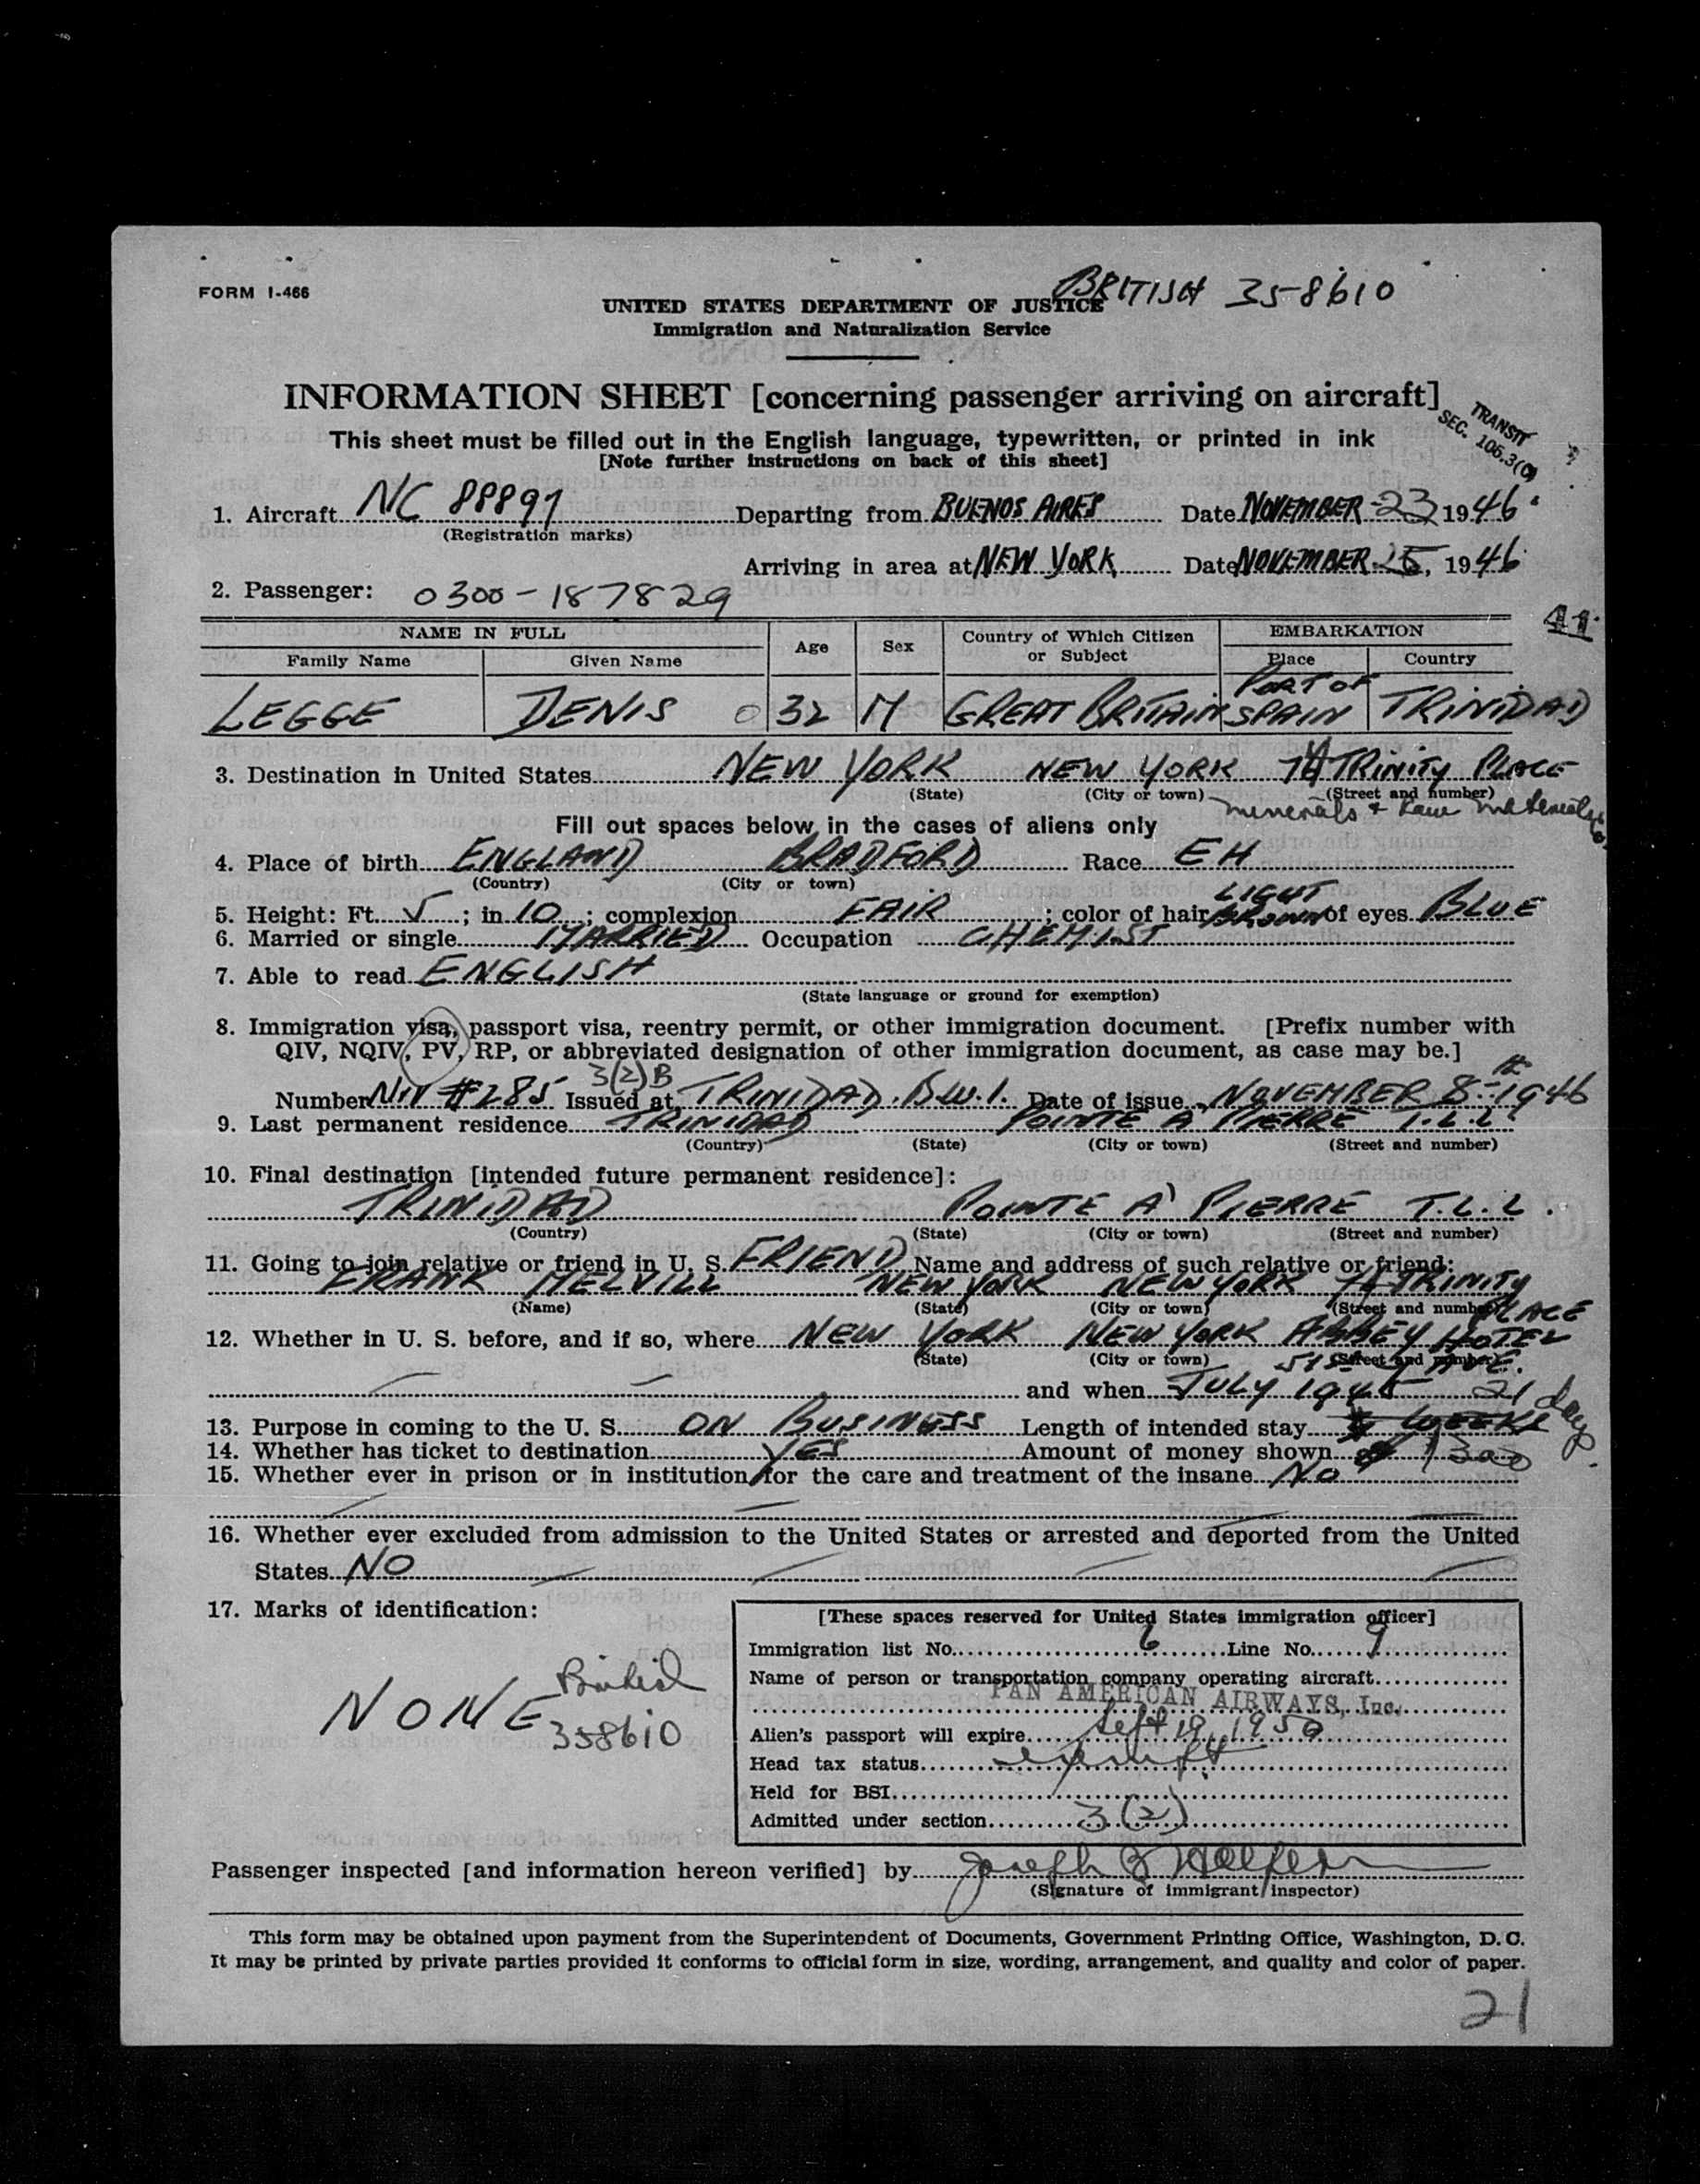 FORM I-466
BRITISH 358610
UNITED STATES DEPARTMENT OF JUSTICE
Immigration and Naturalization Service
INFORMATION SHEET [concerning passenger arriving on aircraft]
TRANSIT
SEC. 106.3(c)
This sheet must be filled out in the English language, typewritten, or printed in ink
[Note further instructions on back of this sheet]
1. Aircraft NC 88897 Departing from BUENOS AIRES Date NOVEMBER 23 1946
(Registration marks)
Arriving in area at NEW YORK Date NOVEMBER 25, 1946
2. Passenger: 0300-187829
41
NAME IN FULL Age Sex Country of Which Citizen or Subject EMBARKATION
Family Name Given Name Place Country
LEGGE DENIS 0 32 M GREAT BRITAIN PORT OF SPAIN TRINIDAD
3. Destination in United States NEW YORK NEW YORK 74 TRINITY PLACE
(State) (City or town) (Street and number)
minerals + raw materials
Fill out spaces below in the cases of aliens only
4. Place of birth ENGLAND BRADFORD Race EH
(Country) (City or town)
5. Height: Ft. 5; in 10; complexion FAIR; color of hair LIGHT BROWN of eyes BLUE
6. Married or single MARRIED Occupation CHEMIST
7. Able to read ENGLISH
(State language or ground for exemption)
8. Immigration visa, passport visa, reentry permit, or other immigration document. [Prefix number with
QIV, NQIV, PV, RP, or abbreviated designation of other immigration document, as case may be.]
3(2)B
Number NIV #285 Issued at TRINIDAD. B.W.I. Date of issue NOVEMBER 8TH 1946
9. Last permanent residence TRINIDAD POINTE A PIERRE T.L.L.
(Country) (State) (City or town) (Street and number)
10. Final destination [intended future permanent residence]:
TRINIDAD POINTE A PIERRE T.L.L.
(Country) (State) (City or town) (Street and number)
11. Going to join relative or friend in U. S. FRIEND Name and address of such relative or friend:
FRANK MELVILL NEW YORK NEW YORK 74 TRINITY PLACE
(Name) (State) (City or town) (Street and number)
12. Whether in U. S. before, and if so, where NEW YORK NEW YORK ABBEY HOTEL
(State) (City or town) (Street and number)
51ST 7 AVE.
and when JULY 1945
21 days
13. Purpose in coming to the U. S. ON BUSINESS Length of intended stay WEEKS
14. Whether has ticket to destination YES Amount of money shown $ 1300
15. Whether ever in prison or in institution for the care and treatment of the insane NO
16. Whether ever excluded from admission to the United States or arrested and deported from the United
States NO
17. Marks of identification:
NONE
British
358610
[These spaces reserved for United States immigration officer]
Immigration list No. 6 Line No. 9
Name of person or transportation company operating aircraft
PAN AMERICAN AIRWAYS, Inc.
Alien's passport will expire Sept 19, 1950
Head tax status exempt
Held for BSI
Admitted under section 3(2)
Passenger inspected [and information hereon verified] by Joseph
(Signature of immigrant inspector)
This form may be obtained upon payment from the Superintendent of Documents, Government Printing Office, Washington, D. C.
It may be printed by private parties provided it conforms to official form in size, wording, arrangement, and quality and color of paper.
21